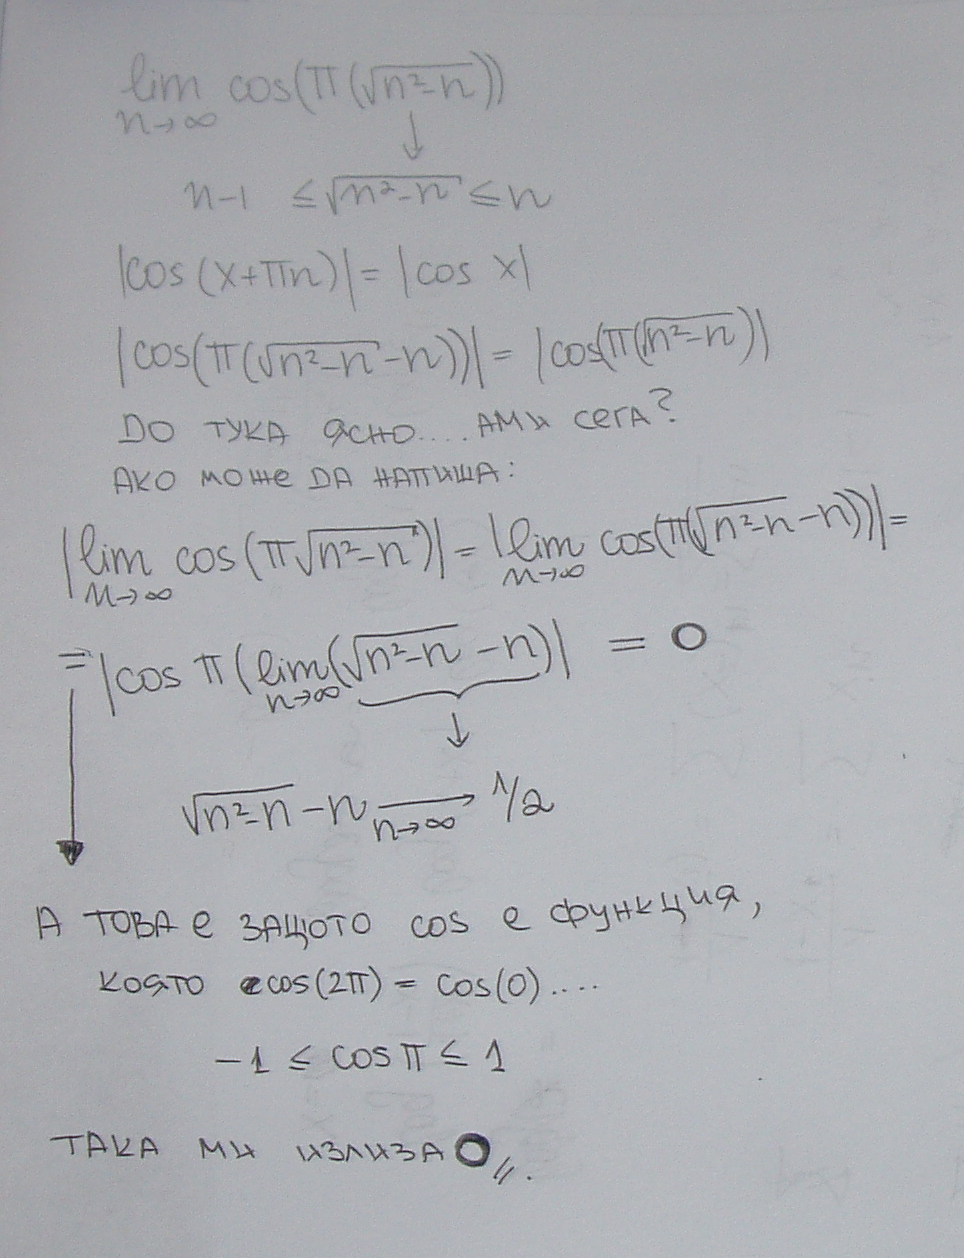 lim cos(π(√n²-n))
n→∞
↓
n-1 ≤ √n²-n ≤ n
|cos(x+πn)| = |cos x|
|cos(π(√n²-n -n))| = |cos(π(√n²-n)|
ДО ТУКА ЯСНО.... АМИ СЕГА?
АКО МОЖЕ ДА НАПИША:
|lim cos(π√n²-n)| = |lim cos(π(√n²-n -n))| =
n→∞ n→∞
= |cos π(lim(√n²-n -n)| = 0
n→∞
↓
√n²-n -n → 1/2
n→∞
А ТОВА е ЗАЩОТО cos е функция,
КОЯТО cos(2π) = cos(0)....
-1 ≤ cos π ≤ 1
ТАКА МИ ИЗЛИЗА 0//.